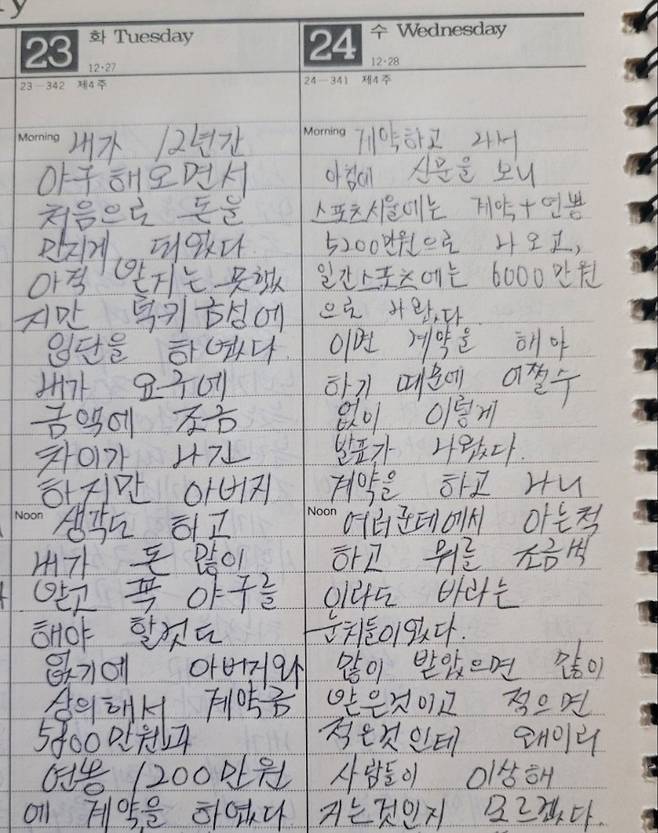 23 화 Tuesday
12·27
23-342 제4주
Morning 내가 12년간
야구해오면서
처음으로 돈을
만지게 되었다
아직 받지는 못했
지만 럭키금성에
입단을 하였다
내가 요구에
금액에 조금
차이가 나긴
하지만 아버지
Noon 생각도 하고
내가 돈 많이
받고 꼭 야구를
해야 할것도
없기에 아버지와
상의해서 계약금
5800만원과
연봉 1200만원
에 계약을 하였다
24 수 Wednesday
12·28
24-341 제4주
Morning 계약하고 나서
아침에 신문을 보니
스포츠서울에는 계약+연봉
5200만원으로 나오고,
일간스포츠에는 6000만원
으로 나왔다
이면 계약을 해야
하기 때문에 어쩔수
없이 이렇게
발표가 나왔다.
계약을 하고 나니
Noon 여러군데에서 아는척
하고 뭐를 조금씩
이라도 바라는
눈치들이었다.
많이 받았으면 많이
받은것이고 적으면
적은것인데 왜이리
사람들이 이상해
지는것인지 모르겠다.